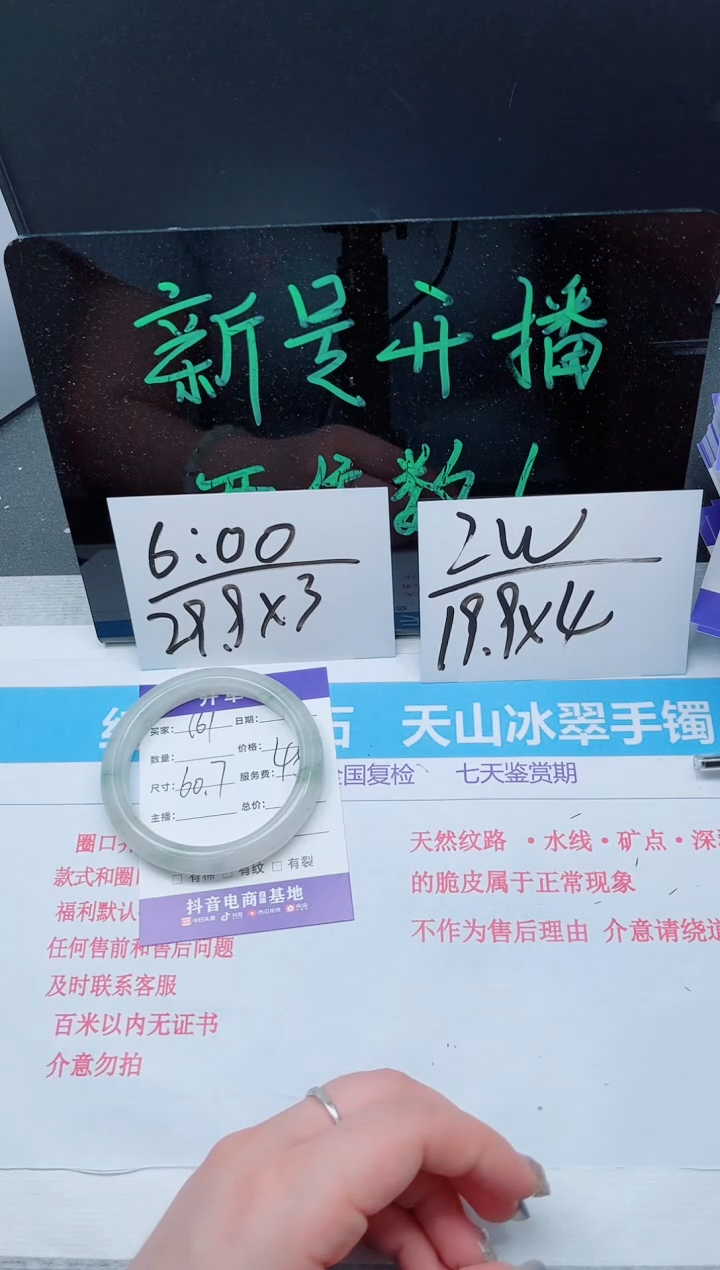 新号开播
6:00
29.9x3
2W
19.9x4
开单
石 天山冰翠手镯
买家: 161 日期:
数量: 价格:
尺寸: 60.7 服务费:
主播: 总价:
全国复检 七天鉴赏期
有棉 有纹 有裂
抖音电商 基地
今日头条 抖音 西瓜视频 火山
圈口
款式和圈
福利默认
任何售前和售后问题
及时联系客服
百米以内无证书
介意勿拍
天然纹路 · 水线 · 矿点 · 深
的脆皮属于正常现象
不作为售后理由 介意请绕道